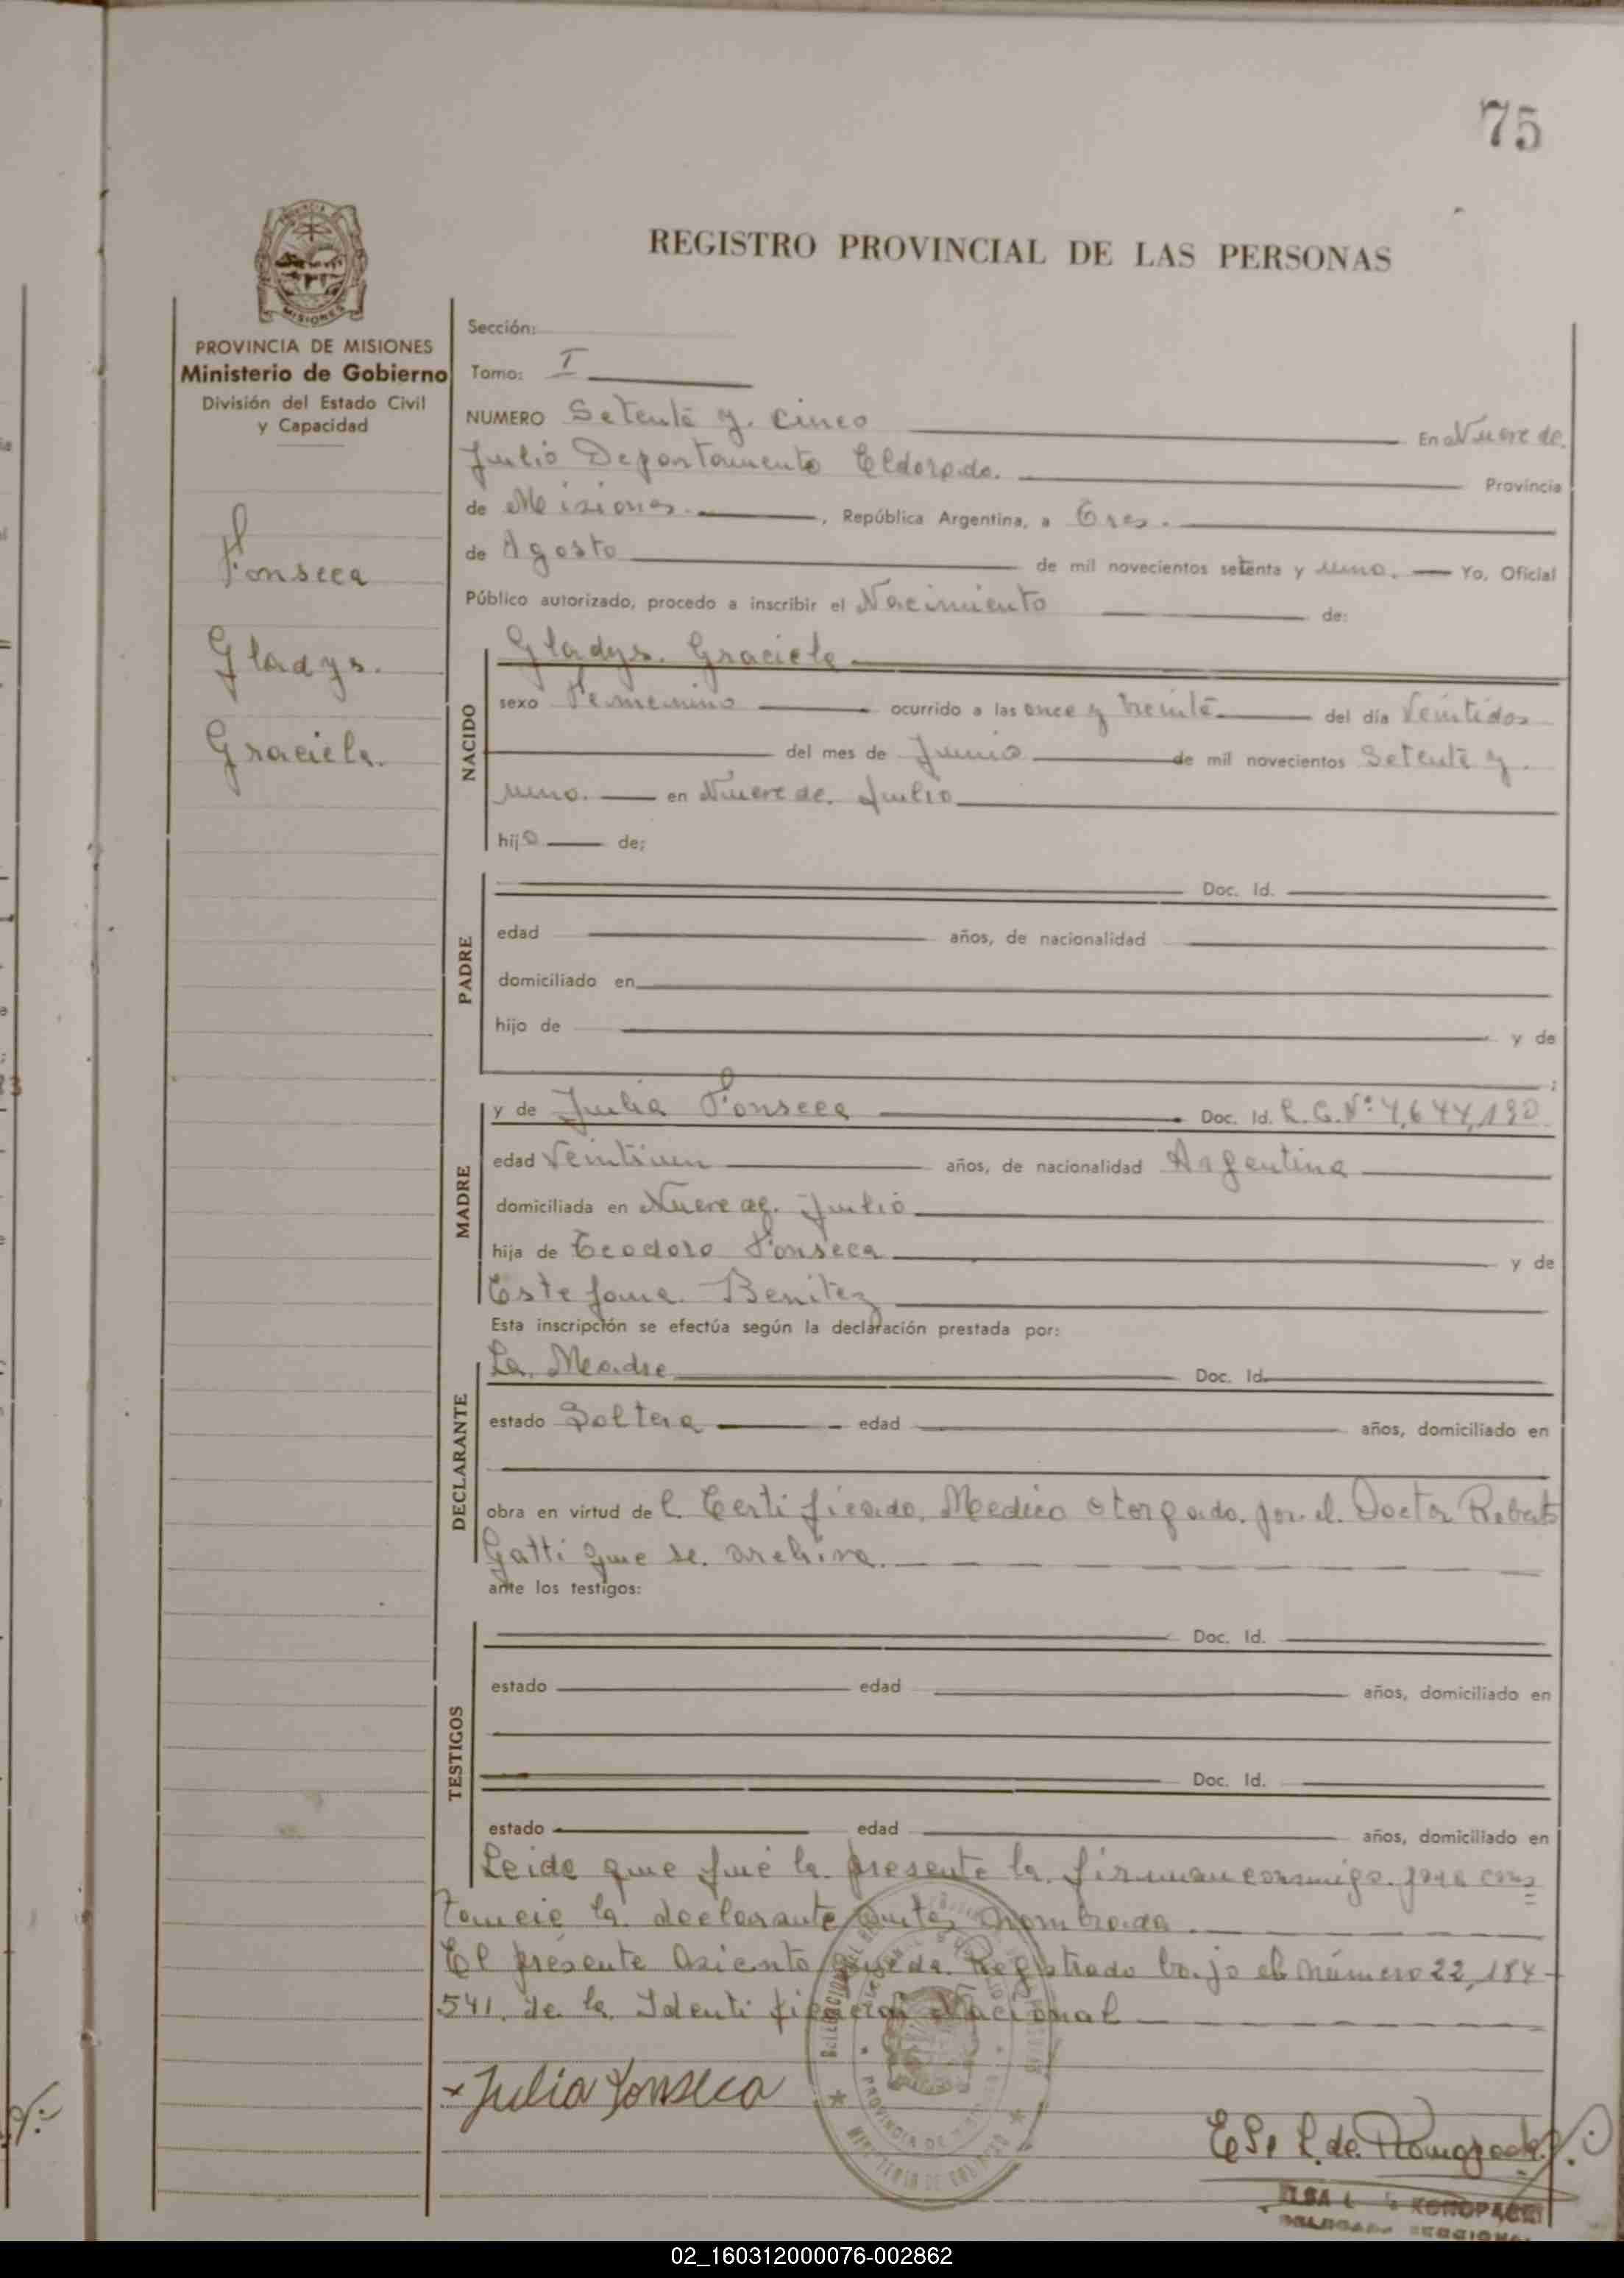 75
REGISTRO PROVINCIAL DE LAS PERSONAS
PROVINCIA DE MISIONES
Ministerio de Gobierno
División del Estado Civil
y Capacidad
Fonseca
Gladys.
Graciela.
Sección:
Tomo: I
NUMERO Setenta y. cinco En Nueve de.
Julio Departamento Eldorado. Provincia
de Misiones. , República Argentina, a Tres.
de Agosto de mil novecientos setenta y uno. Yo, Oficial
Público autorizado, procedo a inscribir el Nacimiento de:
NACIDO
Gladys. Graciela
sexo Femenino ocurrido a las once y treinta del día Veintidos
del mes de Junio de mil novecientos Setenta y.
uno. en Nueve de. Julio
hijo de:
PADRE
Doc. Id.
edad años, de nacionalidad
domiciliado en
hijo de y de
;
MADRE
y de Julia Fonseca Doc. Id. L.C.Nº
edad Veintiun años, de nacionalidad Argentina
domiciliada en Nueve de. Julio
hija de Teodoro Fonseca y de
Estefana. Benitez
Esta inscripción se efectúa según la declaración prestada por:
DECLARANTE
La. Madre Doc. Id.
estado Soltera edad años, domiciliado en
obra en virtud de l. Certificado. Medico otorgado. por. el. Doctor Roberto
Gatti que se. archiva.
ante los testigos:
TESTIGOS
Doc. Id.
estado edad años, domiciliado en
Doc. Id.
estado edad años, domiciliado en
Leida que fué la. presente la. firman conmigo. para cons
tancia la. declarante antes nombrada.
El presente Asiento queda. Registrado bajo el número 22,184
541. de la Identificación Nacional
x Julia Fonseca
PROVINCIA DE
MINISTERIO DE GOBIERNO
E. L. de.
ELSA L KONOPACKI